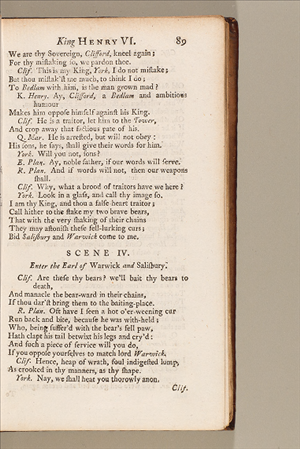 King HENRY VI. 89
We are thy Sovereign, Clifford, kneel again;
For thy mistaking so, we pardon thee.
Clif. This is my King, York, I do not mistake;
But thou mistak'st me much, to think I do;
To Bedlam with him, is the man grown mad?
K. Henry. Ay, Clifford, a Bedlam and ambitious
humour
Makes him oppose himself against his King.
Clif. He is a traitor, let him to the Tower,
And crop away that factious pate of his.
Q. Mar. He is arrested, but will not obey:
His sons, he says, shall give their words for him.
York. Will you not, sons?
E. Plan. Ay, noble father, if our words will serve.
R. Plan. And if words will not, then our weapons
shall.
Clif. Why, what a brood of traitors have we here?
York. Look in a glass, and call thy image so.
I am thy King, and thou a false-heart traitor;
Call hither to the stake my two brave bears,
That with the very shaking of their chains
They may astonish these fell-lurking curs;
Bid Salisbury and Warwick come to me.
SCENE IV.
Enter the Earl of Warwick and Salisbury.
Clif. Are these thy bears? we'll bait thy bears to
death,
And manacle the bear-ward in their chains,
If thou dar'st bring them to the baiting-place.
R. Plan. Oft have I seen a hot o'er-weening cur
Run back and bite, because he was with-held;
Who, being suffer'd with the bear's fell paw,
Hath clapt his tail betwixt his legs and cry'd:
And such a piece of service will you do,
If you oppose yourselves to match lord Warwick.
Clif. Hence, heap of wrath, foul indigested lump,
As crooked in thy manners, as thy shape.
York. Nay, we shall heat you thorowly anon.
Clif.